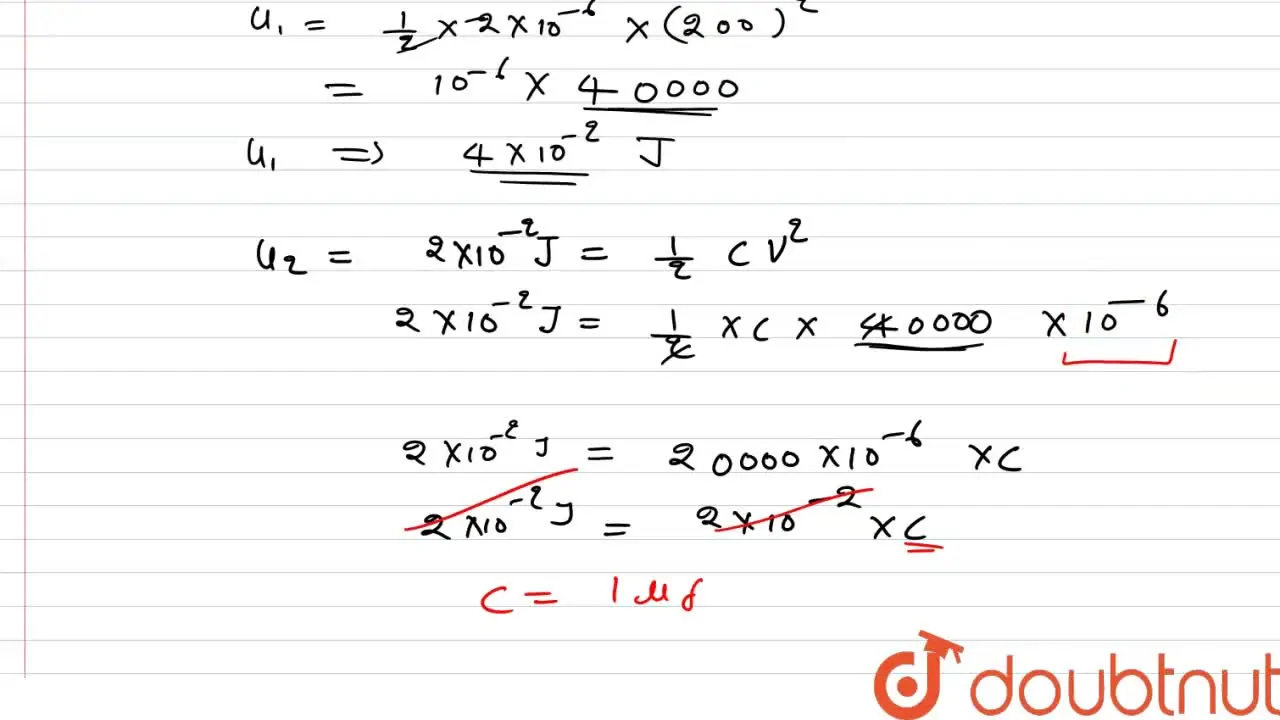 U₁ = 1/2 × 2 × 10⁻⁶ × (200)²
= 10⁻⁶ × 40000
U₁ ⇒ 4 × 10⁻² J
U₂ = 2 × 10⁻² J = 1/2 C V²
2 × 10⁻² J = 1/2 × C × 40000 × 10⁻⁶
2 × 10⁻² J = 20000 × 10⁻⁶ × C
2 × 10⁻² J = 2 × 10⁻² × C
C = 1 μf
doubtnut